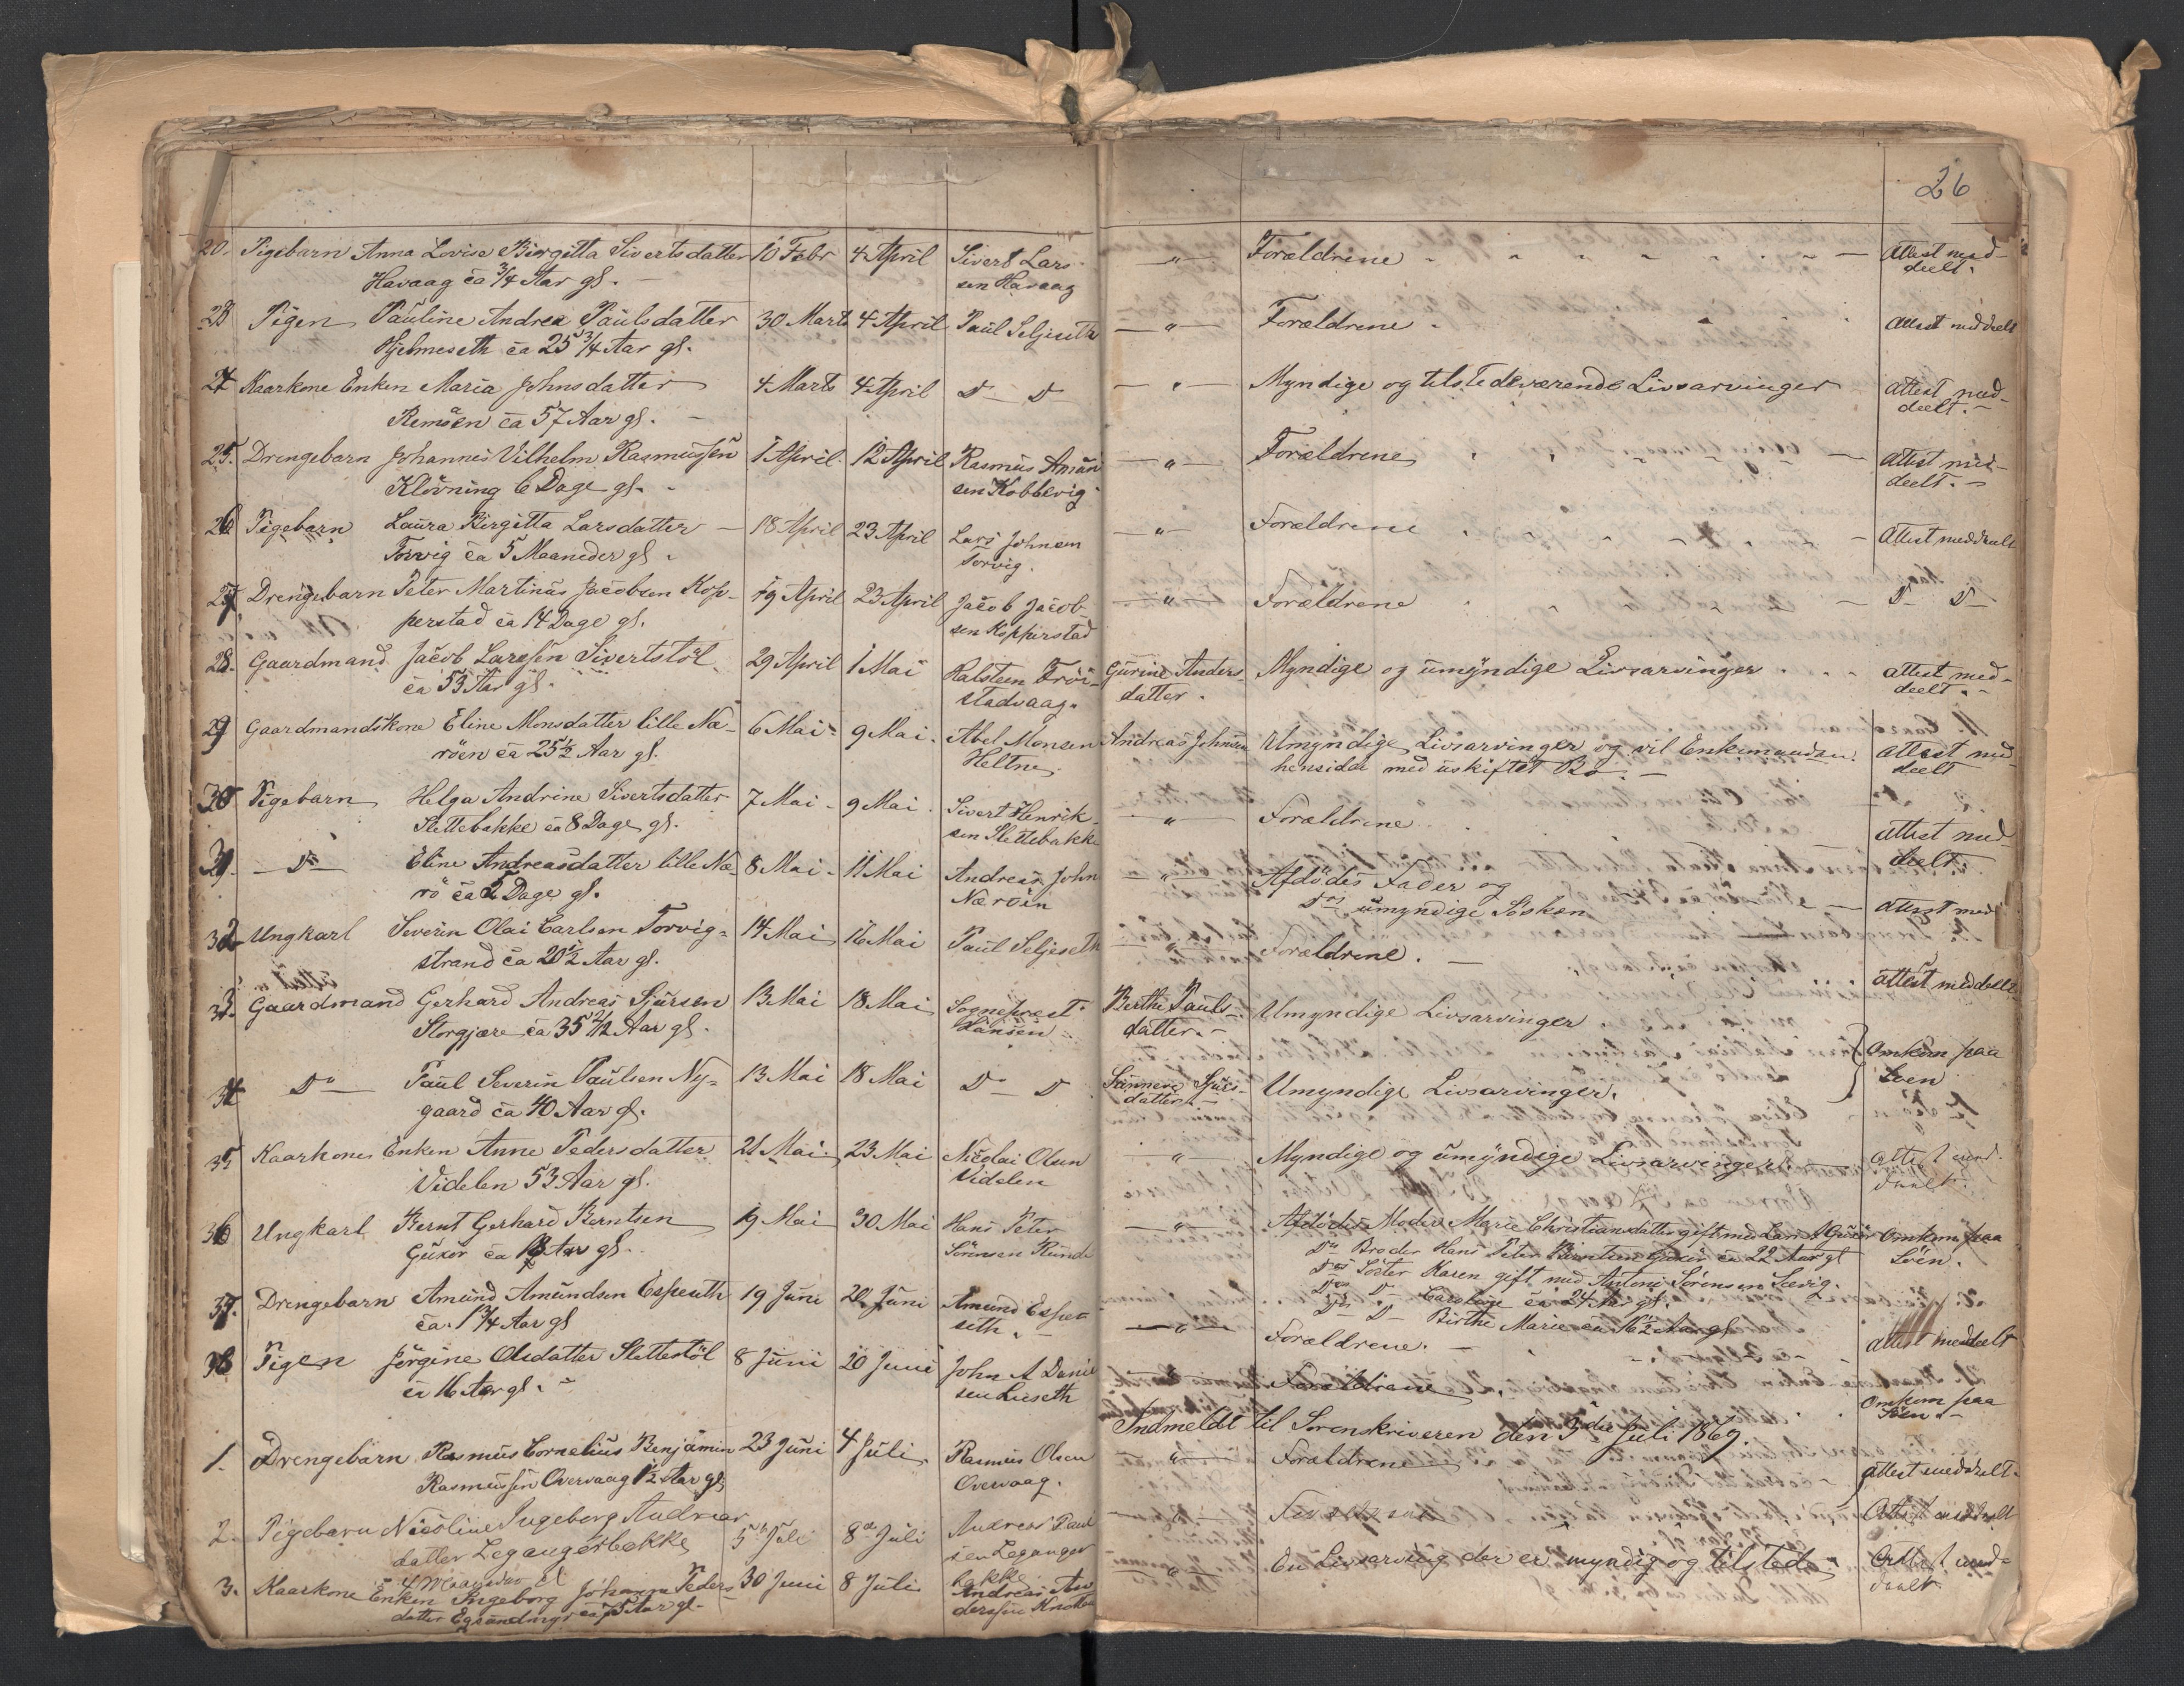 26
20. Pigebarn Anna Lovise Birgitta Sivertsdatter 10 Febr 4 April Sivert Lars- — " — Forældrene Attest med-
Havaag ca 3/4 Aar gl. sen Havaag deelt.
28 Pigen Pauline Andrea Paulsdatter 30 Marts 4 April Paul Seljeseth — " — Forældrene Attest meddeelt
Hjelmeseth ca 25 3/4 Aar gl.
24 Kaarkone Enken Maria Johnsdatter 4 Marts 4 April D— D— — " — Myndige og tilstedeværende Livsarvinger Attest med-
Remøen ca 57 Aar gl. deelt.
25. Drengebarn Johannes Vilhelm Rasmussen 1 April 12 April Rasmus Amun — " — Forældrene Attest med-
Kløvning 6 Dage gl. sen Kobbevig deelt.
26 Pigebarn Laura Birgitta Larsdatter 18 April 23 April Lars Johnsen — " — Forældrene Attest meddeelt
Torvig ca 5 Maaneder gl. Torvig.
27 Drengebarn Peter Martinus Jacobsen Kop- 19 April 23 April Jacob Jacob- — " — Forældrene D— D—
perstad ca 14 Dage gl. sen Kopperstad
28. Gaardmand Jacob Larssen Sivertstøl 29 April 1 Mai Halsten Frøi- Gurine Anders- Myndige og umyndige Livsarvinger Attest med-
ca 53 Aar gl. stadvaag. datter. deelt.
29 Gaardmandskone Eline Monsdatter lille Næ- 6 Mai 9 Mai. Abel Monsen Andreas Johnsen Umyndige Livsarvinger og vil Enkemanden Attest med-
røen ca 25 1/2 Aar gl. Heltne hensidde med uskiftet Bo. deelt
30 Pigebarn Helga Andrine Sivertsdatter 7 Mai 9 Mai. Sivert Henrik- — " — Forældrene Attest med-
Slettebakke ca 8 Dage gl. sen Slettebakke deelt.
31. — Do — Eline Andreasdatter lille Næ- 8 Mai 11 Mai Andreas John — " — Afdødes Fader og
rø ca 2 Dage gl. Nærøen Dos umyndige Søsken Attest med
32 Ungkarl Severin Olai Carlsen Torvig- 14 Mai 16 Mai Paul Seljeseth — " — Forældrene.
strand ca 20 1/2 Aar gl. Attest meddeelt
33. Gaardmand Gerhard Andreas Sjursen 13 Mai 18 Mai Sogneprest Berthe Pauls- Umyndige Livsarvinger
Storgjære ca 35 2/12 Aar gl. Hansen datter. Omkom paa
34 Do — Paul Severin Paulsen Ny- 13 Mai 18 Mai Do— D Sunneva Sjurs- Umyndige Livsarvinger. Søen
gaard ca 40 Aar gl. datter.
35 Kaarkone Enken Anne Pedersdatter 21 Mai. 23 Mai Nicolai Olsen — " — Myndige og umyndige Livsarvinger. Attest med-
Videlen 53 Aar gl. Videlen deelt.
36 Ungkarl Bernt Gerhard Berntsen 19 Mai 30 Mai Hans Peter — " — Afdødes Moder Marie Christiansdatter gift med Lars Gurør Omkom paa
Gurør ca 18 Aar gl. Sørensen Runde Ds Broder Hans Peter Berntsen Gurør ca 22 Aar gl. Søen.
Dos Søster Karen gift med Antoni Sørensen Sævig.
Dos D— Caroline ca 24 Aar gl.
Dos D— Birthe Marie ca 16 1/2 Aar gl.
37. Drengebarn Amund Amundsen Espeseth 19 Juni 20 Juni Amund Espe- — " — Forældrene. Attest meddeelt
ca. 1 3/4 Aar gl seth.
38 Pigen Jørgine Olsdatter Slettestøl 8 Juni 20 Juni John A Danie Forældrene Omkom paa
ca 16 Aar gl. sen Lieseth Søen.
Indmeldt til Sorenskriveren den 3die Juli 1869
1. Drengebarn Rasmus Cornelius Benjamin 23 Juni 4 Juli. Rasmus Olsen — " — Forældrene Attest meddeelt.
Rasmussen Overvaag 1/2 Aar gl. Overvaag.
2. Pigebarn Nicoline Ingeborg Andreas 5te Juli 8de Juli Andreas Paul — " — Forældrene Attest meddeelt
datter Legangerbakke sen Leganger
4 Maaneder gl bakke
3. Kaarkone Enken Ingeborg Johanne Peders- 30 Juni 8 Juli Andreas An — " — En Livsarving der er myndig og tilstede. Attest med-
datter Egsundnes ca 75 Aar gl. derssen Knotten deelt.